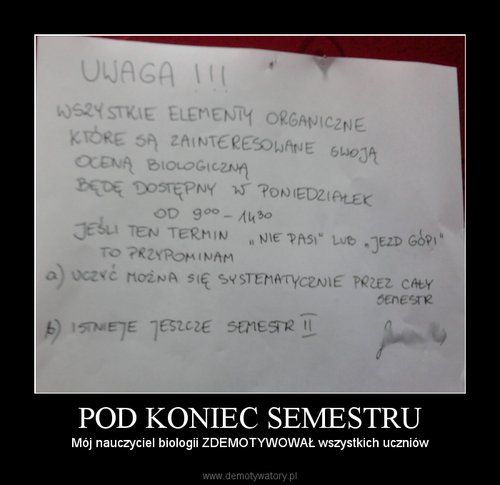 UWAGA !!!
WSZYSTKIE ELEMENTY ORGANICZNE
KTÓRE SĄ ZAINTERESOWANE SWOJĄ
OCENĄ BIOLOGICZNĄ
BĘDĘ DOSTĘPNY W PONIEDZIAŁEK
OD 9⁰⁰ - 14³⁰
JEŚLI TEN TERMIN „NIE PASI" LUB „JEZD GÓPI"
TO PRZYPOMINAM
a) UCZYĆ MOŻNA SIĘ SYSTEMATYCZNIE PRZEZ CAŁY
SEMESTR
b) ISTNIEJE JESZCZE SEMESTR II
POD KONIEC SEMESTRU
Mój nauczyciel biologii ZDEMOTYWOWAŁ wszystkich uczniów
www.demotywatory.pl